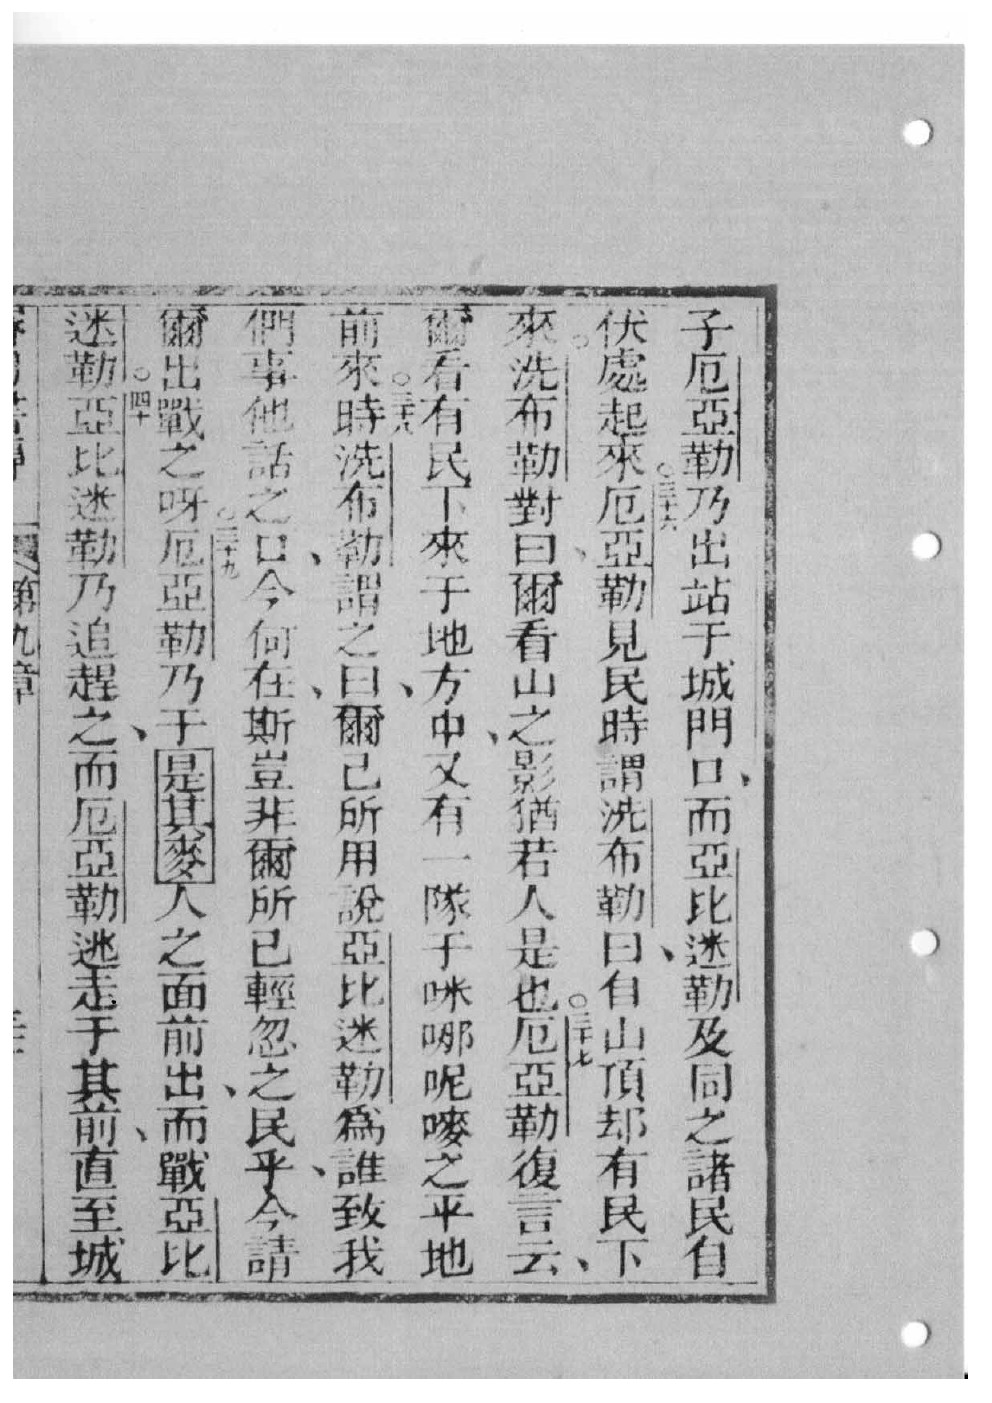 子厄亞勒乃出站于城門口、而亞比迷勒及同之諸民自
伏處起來○三十六厄亞勒見民時謂洗布勒曰、自山頂却有民下
來。洗布勒對曰、爾看山之影猶若人是也○三十七厄亞勒復言云、
爾看有民下來于地方中、又有一隊于咪哪呢嘜之平地
前來時○三十八洗布勒謂之曰、爾己所用說亞比迷勒為誰致我
們事他話之口、今何在、斯豈非爾所已輕忽之民乎、今請
爾出戰之呀○三十九厄亞勒乃于是其麥人之面前出、而戰亞比
迷勒○四十亞比迷勒乃追趕之、而厄亞勒逃走于其前、直至城
第九章